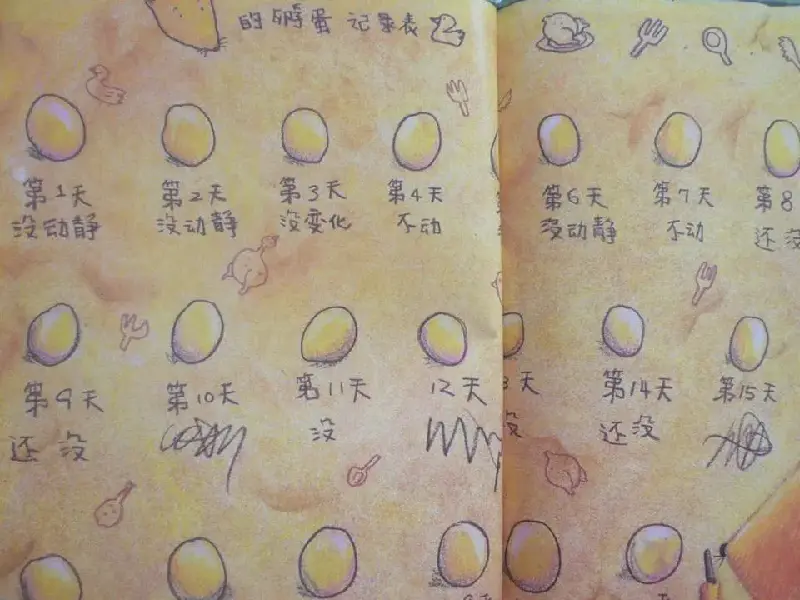 的孵蛋 记录表
第1天 第2天 第3天 第4天 第6天 第7天 第8
没动静 没动静 没变化 不动 没动静 不动 还没
第9天 第10天 第11天 12天 3天 第14天 第15天
还没 没 没 还没